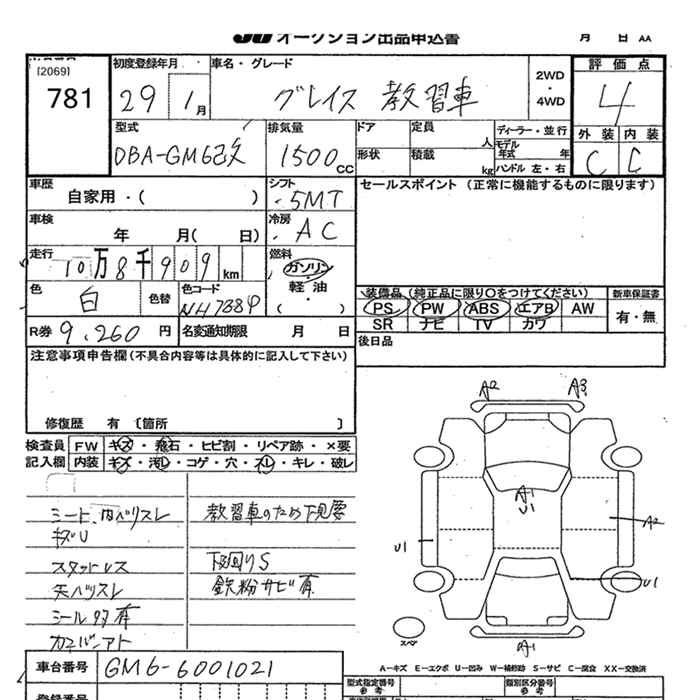 JU オークション出品申込書 月 日 AA
[2069]
781
初度登録年月 車名・グレード 2WD・4WD 評価点
29 1月 グレイス 教習車 4
型式 排気量 ドア 定員 人 ディーラー・並行 外装 内装
DBA-GM6改 1500CC 形状 積載 kg モデル年式 年 ハンドル 左・右 C C
車歴 シフト セールスポイント (正常に機能するものに限ります)
自家用・( ) 5MT
車検 冷房
年 月( 日) AC
走行 燃料
10万8千909km ガソリン
軽油
色 色コード 装備品 (純正品に限り○をつけてください) 新車保証書
白 色替 NH788P ・( ) PS PW ABS エアB AW 有・無
R券 9,260円 名変通知期限 月 日 SR ナビ TV カワ
注意事項申告欄(不具合内容等は具体的に記入して下さい) 後日品
修復歴 有 〔箇所 〕
検査員 FW キズ・飛石・ヒビ割・リペア跡・×要
記入欄 内装 キズ・汚レ・コゲ・穴・スレ・キレ・破レ
シート、内ハリスレ 教習車のため下見要
キズU
スタッドレス 下回りS
天ハリスレ 鉄粉サビ有
シール多有
A2 A3
A1
U1
U1 A2
U1
スペア A1
車台番号 GM6-6001021
A-キズ E-エクボ U-凹み W-補修跡 S-サビ C-腐食 XX-交換済
型式指定番号 類別区分番号
参考 参考